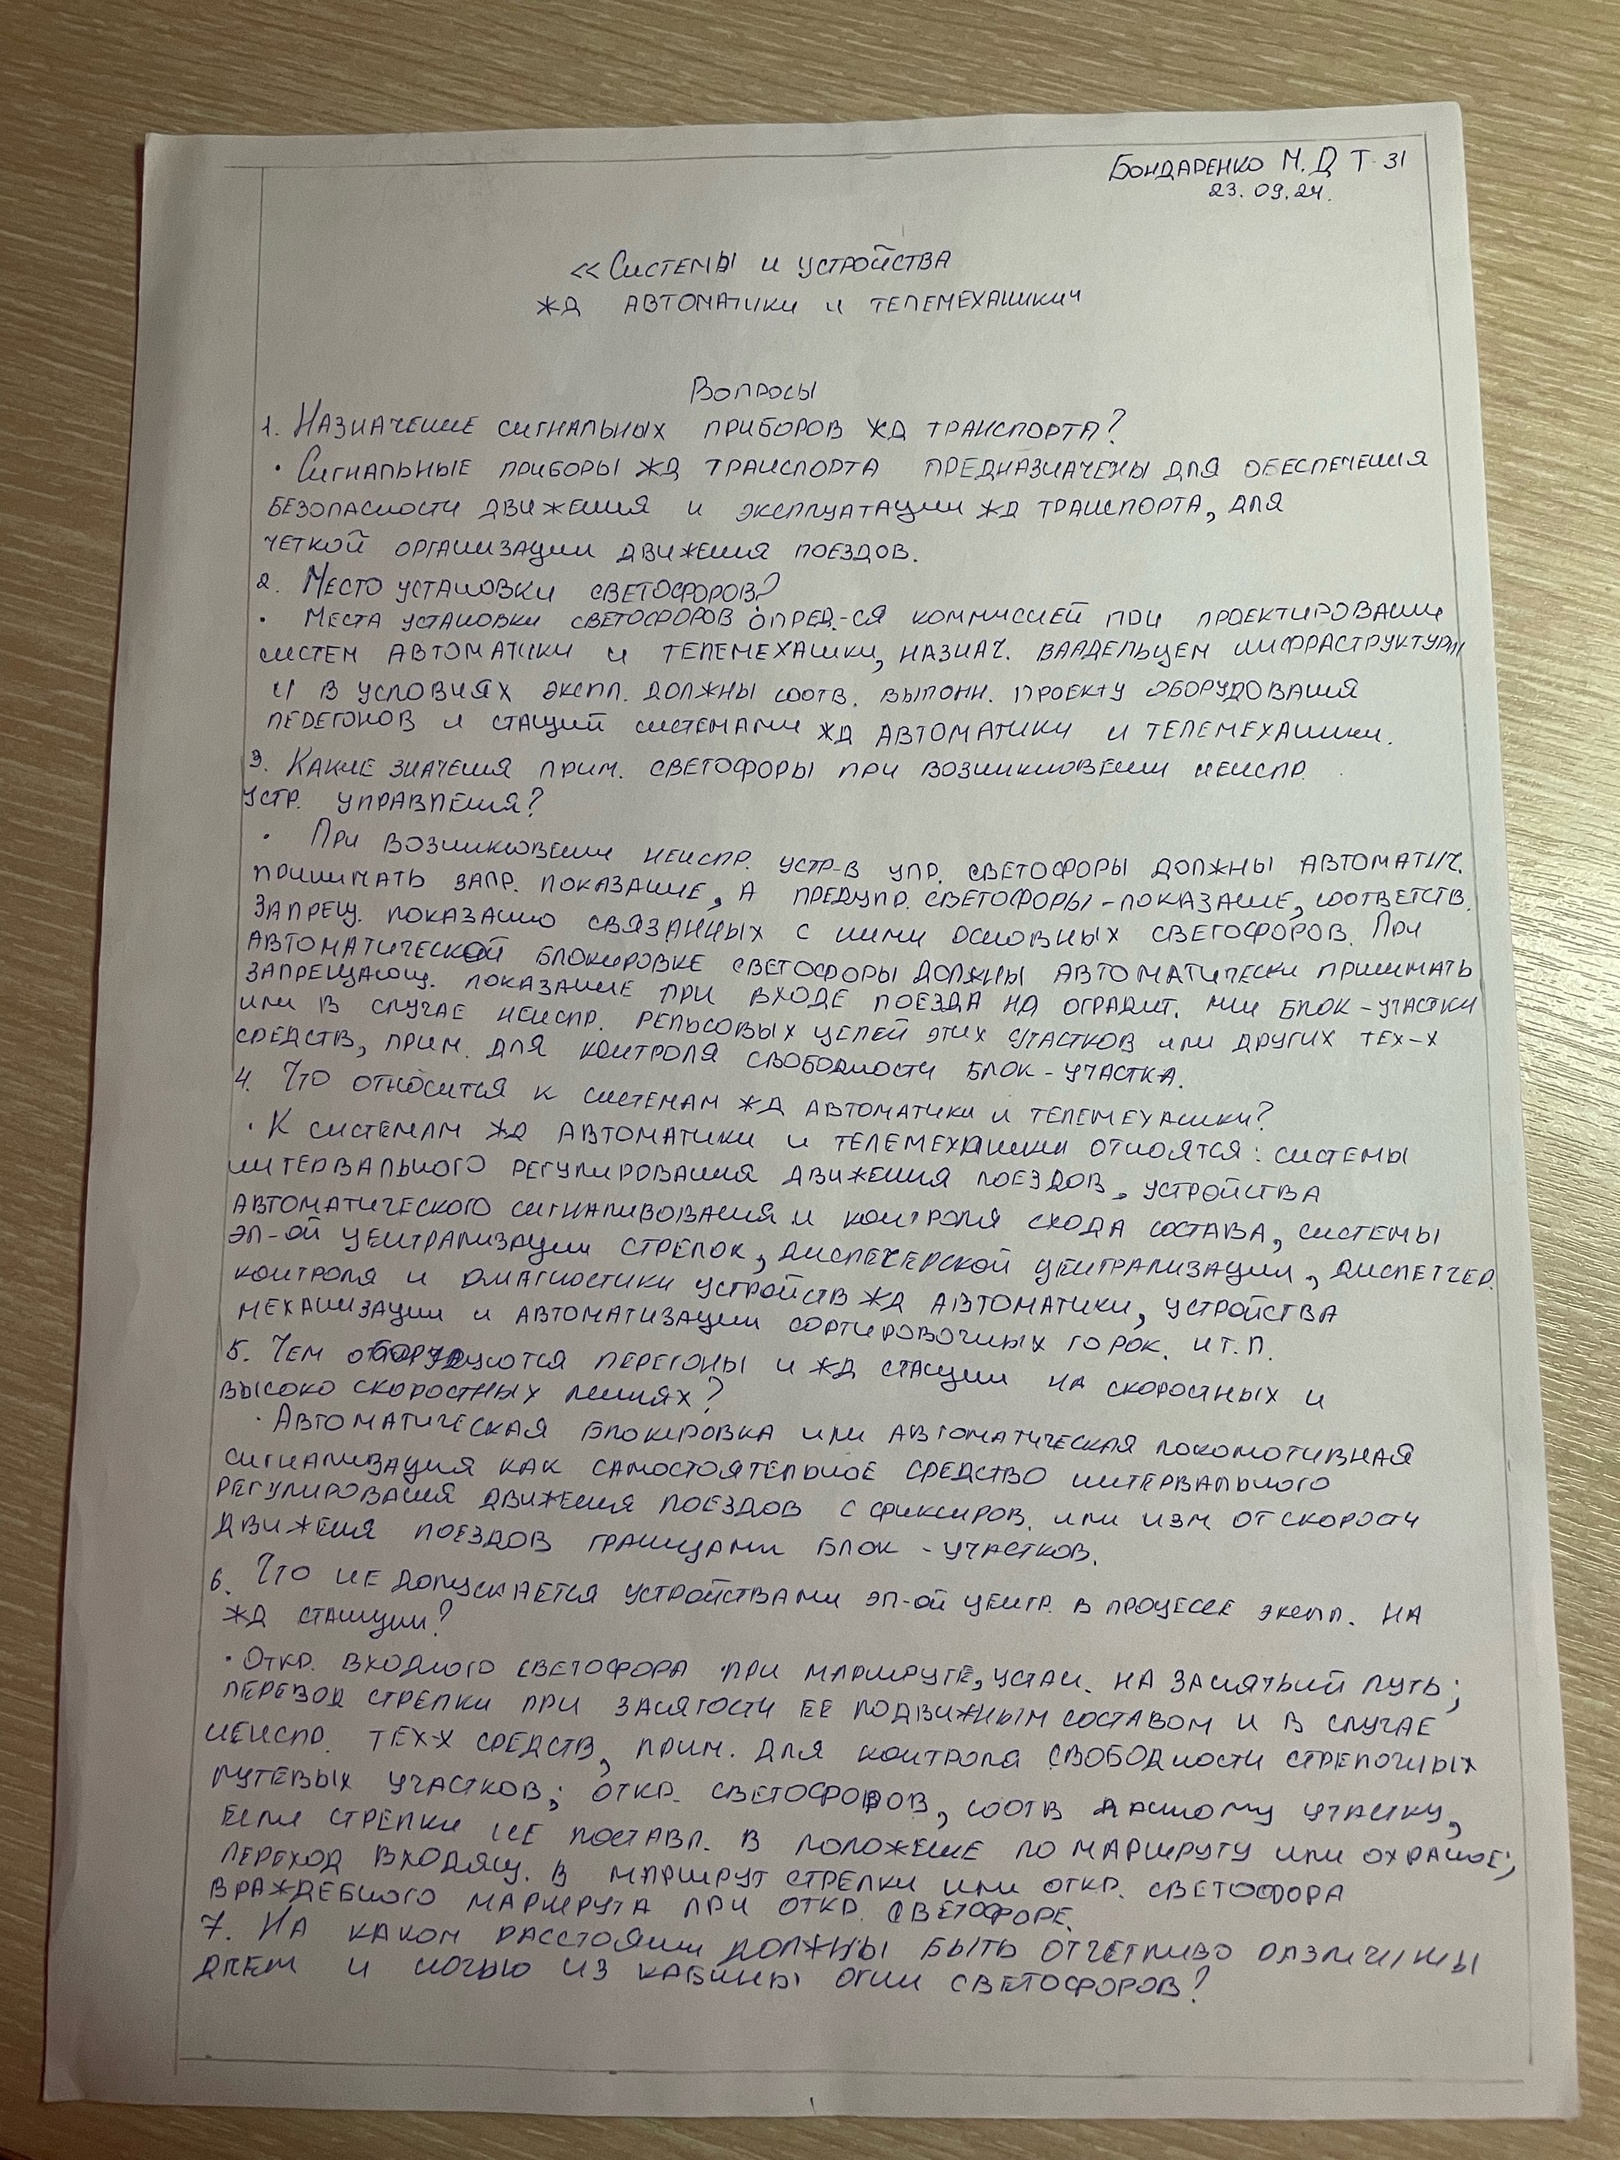 Бондаренко М.Д Т-31
23.09.24.
«Системы и устройства
ЖД автоматики и телемеханики"
Вопросы
1. Назначение сигнальных приборов ЖД транспорта?
· Сигнальные приборы ЖД транспорта предназначены для обеспечения
безопасности движения и эксплуатации ЖД транспорта, для
четкой организации движения поездов.
2. Место установки светофоров?
· Места установки светофоров опред-ся коммиссией при проектировании
систем автоматики и телемеханики, назнач. владельцем инфраструктуры
и в условиях экспл. должны соотв. выполн. проекту оборудования
перегонов и станций системами ЖД автоматики и телемеханики.
3. Какие значения прим. светофоры при возникновении неиспр.
устр. управления?
· При возникновении неиспр. устр-в упр. светофоры должны автоматич.
принимать запр. показание, а предупр. светофоры - показание, соответств.
запрещ. показанию связанных с ними основных светофоров. При
автоматической блокировке светофоры должны автоматически принимать
запрещающ. показание при входе поезда на оградит. ими блок - участки
или в случае неиспр. рельсовых цепей этих участков или других тех-х
средств, прим. для контроля свободности блок - участка.
4. Что относится к системам ЖД автоматики и телемеханики?
· К системам ЖД автоматики и телемеханики отноятся: системы
интервального регулирования движения поездов, устройства
автоматического сигнализования и контроля схода состава, системы
эл-ой централизации стрелок, диспечерской централизации, диспетчер.
контроля и диагностики устройств ЖД автоматики, устройства
механизации и автоматизации сортировочных горок. и т.п.
5. Чем оборудуются перегоны и ЖД станции на скоростных и
высоко скоростных линиях?
· Автоматическая блокировка или автоматическая локомотивная
сигнализация как самостоятельное средство интервального
регулирования движения поездов с фиксиров. или изм от скорости
движения поездов границами блок - участков.
6. Что не допускается устройствами эл-ой центр. в процессе экспл. на
ЖД станции?
· Откр. входного светофора при маршруте, устан. на занятый путь;
перевод стрелки при занятости ее подвижным составом и в случае
неиспр. тех-х средств, прим. для контроля свободности стрелочных
путевых участков; откр. светофоров, соотв данному участку,
если стрелки не поставл. в положение по маршруту или охраное;
переход входящ. в маршрут стрелки или откр. светофора
враждебного маршрута при откр. светофоре.
7. На каком расстоянии должны быть отчетливо различимы
днем и ночью из кабины огни светофоров?